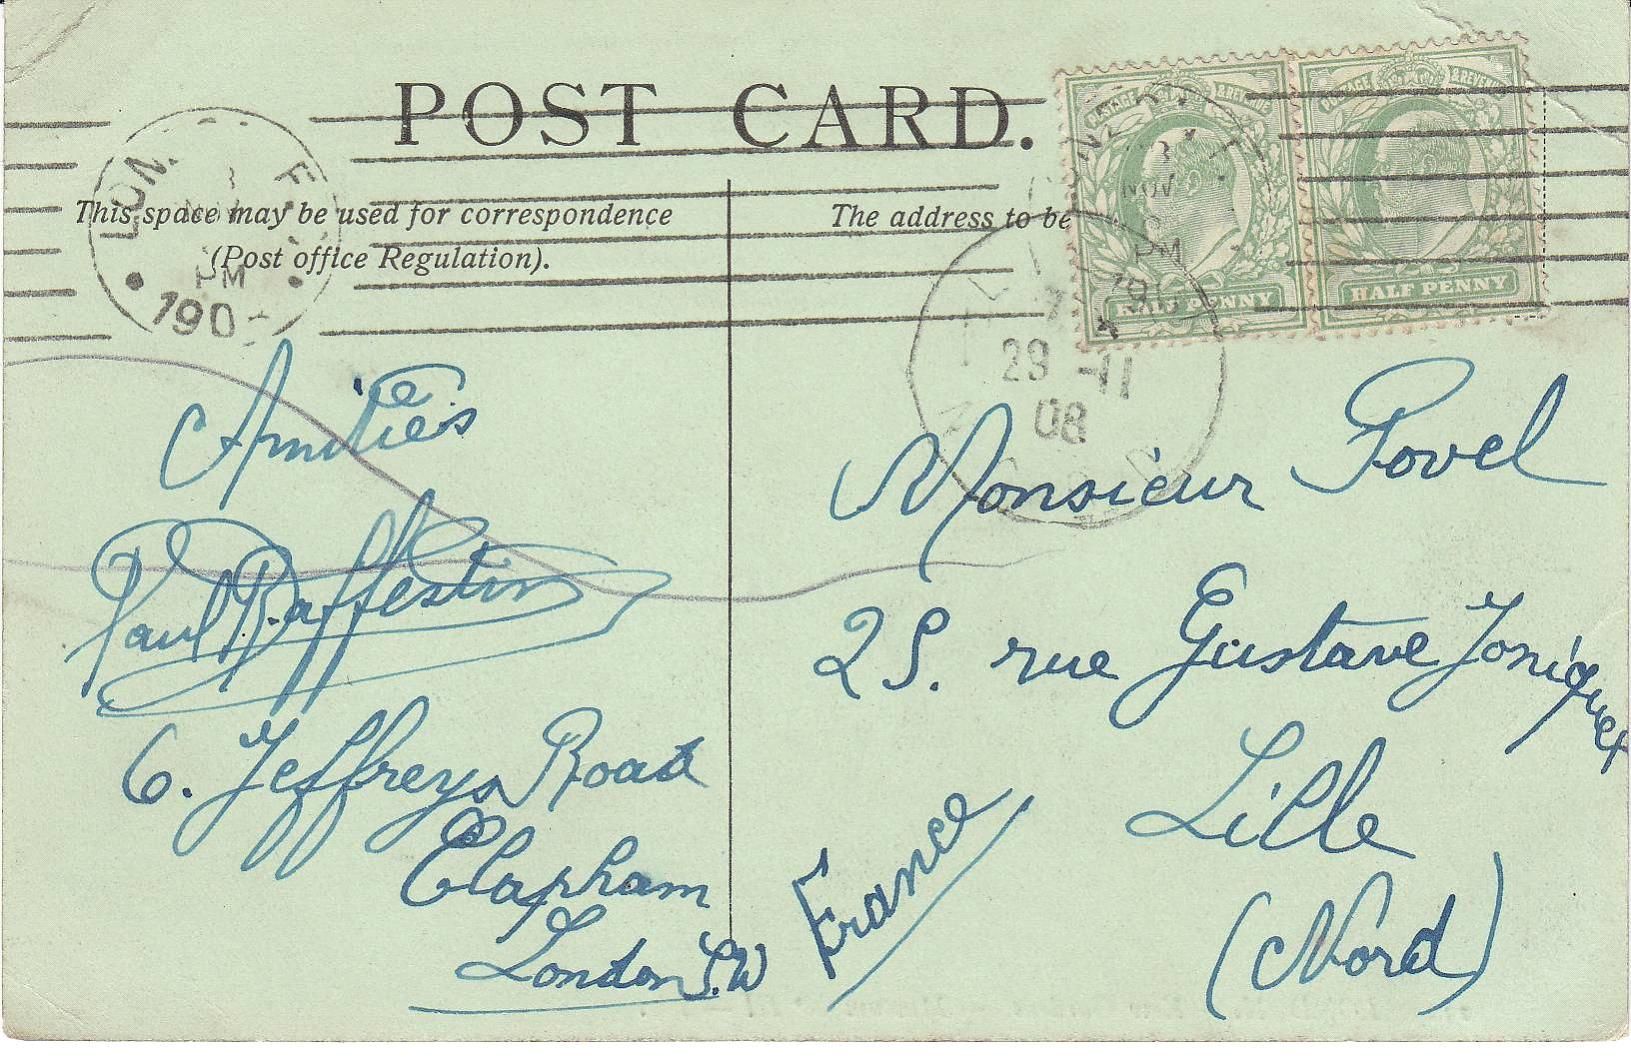 POST CARD.
This space may be used for correspondence
(Post office Regulation).
The address to be
POSTAGE & REVENUE
HALF PENNY
POSTAGE & REVENUE
HALF PENNY
LON
PM
190
NOV
PM
29 -11
08
Amitiés
Paul Raffestin
6. Jeffreys Road
Clapham
London S.W
Monsieur Povel
25. rue Gustave
Lille
(Nord)
France